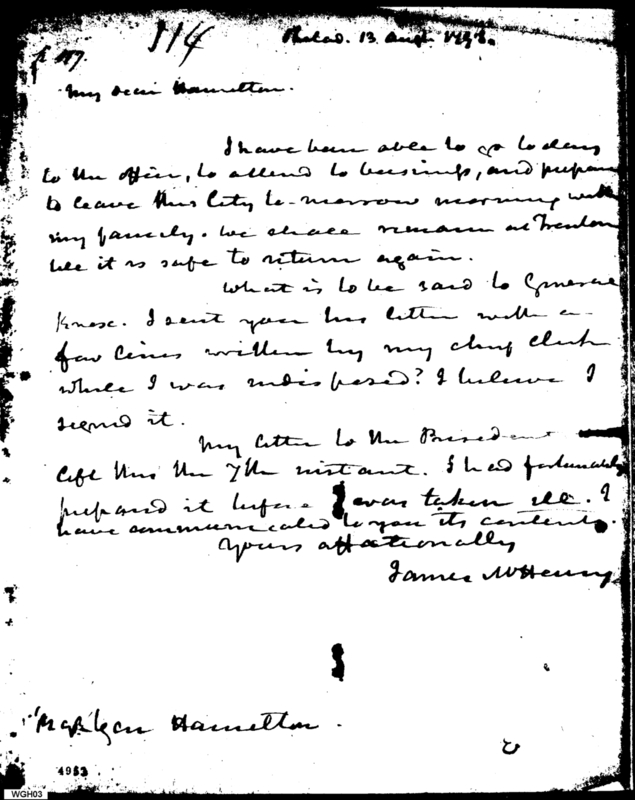 114
Philad. 13 Augt 1798.
My dear Hamilton.
I have been able to go to day
to the office, to attend to business, and prepare
to leave this City to-morrow morning with
my family. We shall remain at Trenton
till it is safe to return again.
What is to be said to General
Knox. I sent you his letter with a
few lines written by my chief Clerk
while I was indisposed? I believe I
signed it.
My letter to the President
left this the 7th instant. I had fortunately
prepared it before I was taken ill. I
have communicated to you its contents.
Yours affectionally
James McHenry
Majr Gen Hamilton.
4953
WGH03